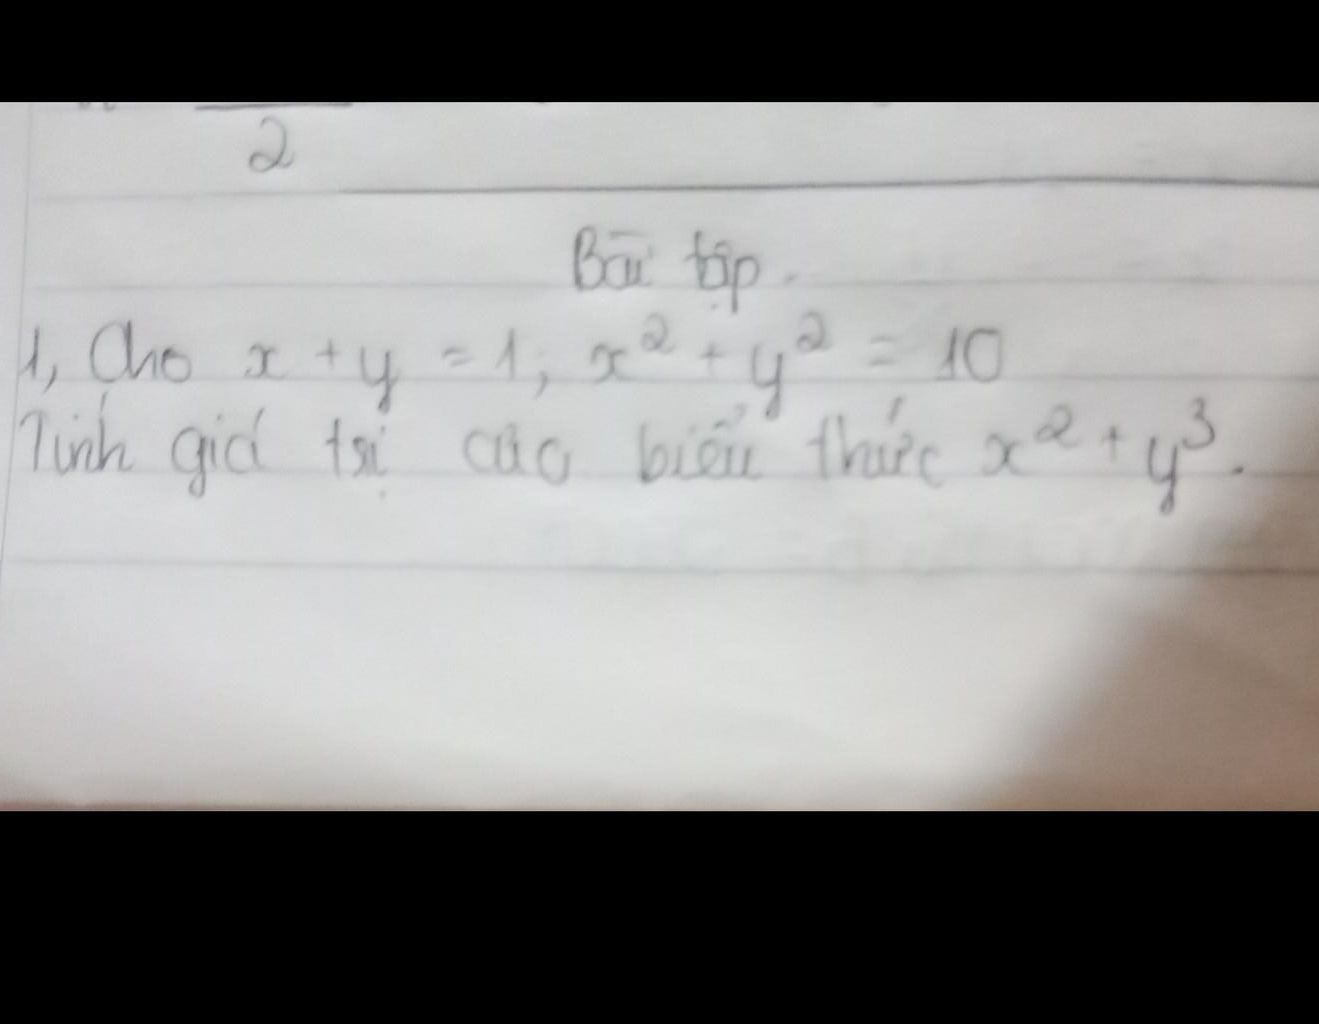 2
Bài tập.
1, Cho x + y = 1; x² + y² = 10
Tính giá trị của biểu thức x² + y³.